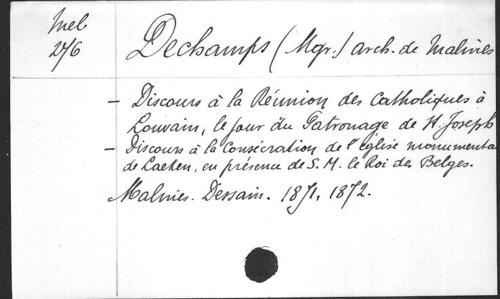 Mel
276
Dechamps (Mgr.) arch. de Malines
- Discours à la Réunion des Catholiques à
Louvain, le jour du Patronage de St. Joseph
- Discours à la Consécration de l'église monumenta
de Laeken, en présence de S. M. le Roi des Belges.
Malines. Dessain. 1871, 1872.